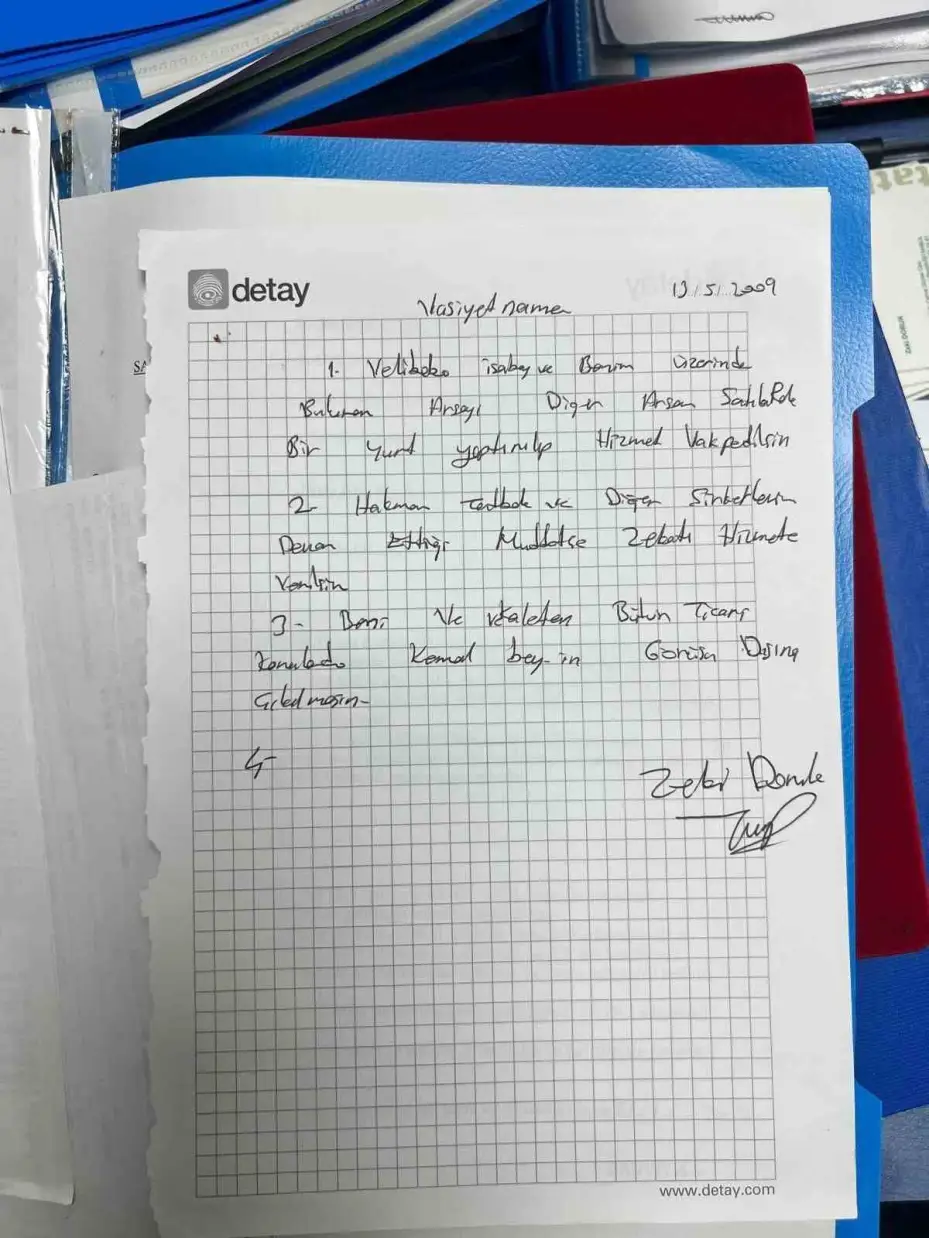 detay
13.5.2009
Vasiyetname
1- Velibaba isabey ve Benim üzerinde
Bulunan Arsayı Diğer Arsam Satılarak
Bir yurt yaptırılıp Hizmet Vakfedilsin
2- Hakman ve Diğer Şirketlerim
Devam Ettiği Müddetçe Zekatı Hizmete
Verilsin
3- Beni Ve Bütün Ticari
Konularda Kemal bey-in Görüşü Dışına
Çıkılmasın-
4-
Zeki
www.detay.com